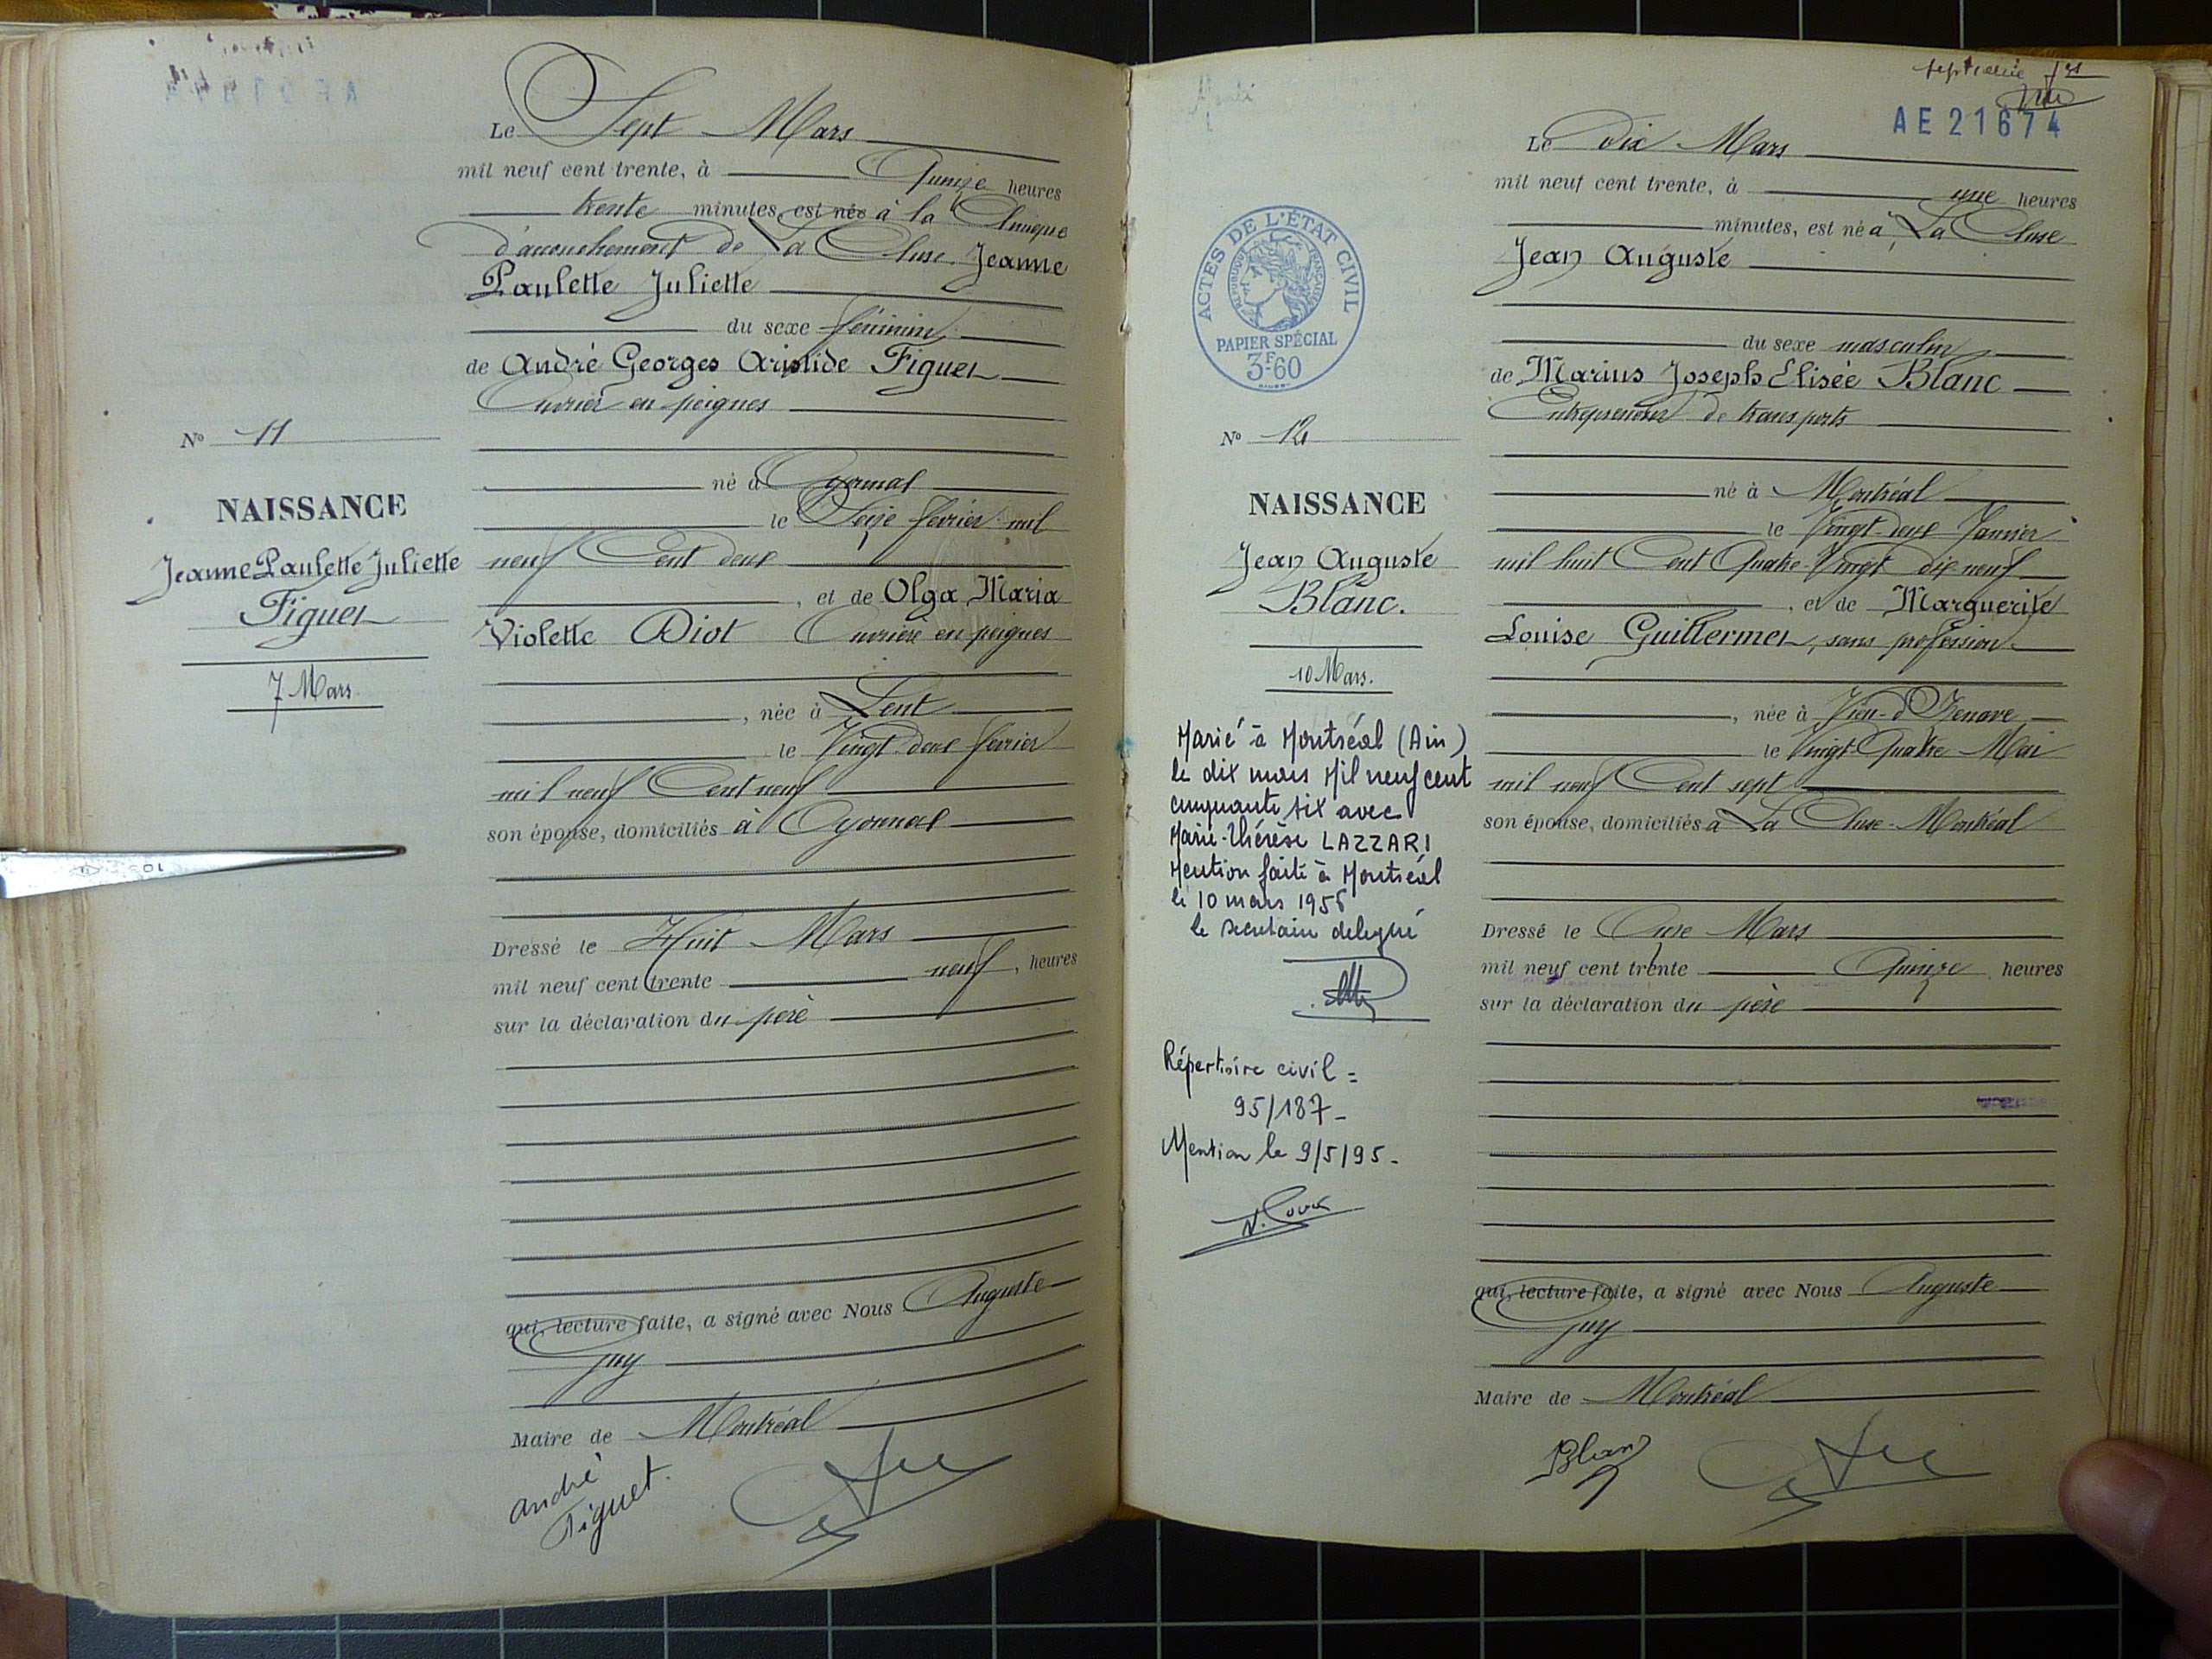 Le Sept Mars
mil neuf cent trente, à Quinze heures
trente minutes, est née à la Clinique
d'accouchement de La Cluse. Jeanne
Paulette Juliette
du sexe féminin
de André Georges Aristide Figuet
Ouvrier en peignes
né à Oyonnax
le Seize février mil
neuf Cent deux
, et de Olga Maria
Violette Diot Ouvrière en peignes
, née à Lent
le Vingt-deux février
mil neuf Cent neuf
son épouse, domiciliés à Oyonnax
Dressé le Huit Mars
mil neuf cent trente neuf, heures
sur la déclaration du père
qui, lecture faite, a signé avec Nous Auguste
Guy
Maire de Montréal
André
Figuet.
N° 11
NAISSANCE
Jeanne Paulette Juliette
Figuet
7 Mars
septième
AE 21674
Le Dix Mars
mil neuf cent trente, à une heures
minutes, est né à La Cluse
Jean Auguste
du sexe masculin
de Marius Joseph Elisée Blanc
Entrepreneur de transports
né à Montréal
le Vingt-deux Janvier
mil huit Cent Quatre-Vingt dix neuf
, et de Marguerite
Louise Guillermet, sans profession
, née à Vieu-d'Izenave
le Vingt-Quatre Mai
mil neuf Cent sept
son épouse, domiciliés à La Cluse-Montréal
Dressé le Onze Mars
mil neuf cent trente Quinze heures
sur la déclaration du père
qui, lecture faite, a signé avec Nous Auguste
Guy
Maire de Montréal
Blanc
ACTES DE L'ÉTAT CIVIL
RÉPUBLIQUE FRANÇAISE
PAPIER SPÉCIAL
3F60
N° 12
NAISSANCE
Jean Auguste
Blanc.
10 Mars.
Marié à Montréal (Ain)
le dix mars Mil neuf cent
cinquante six avec
Marie-Thérèse LAZZARI
Mention faite à Montréal
le 10 mars 1956
le secrétaire délégué
Répertoire civil =
95/187-
Mention le 9/5/95-